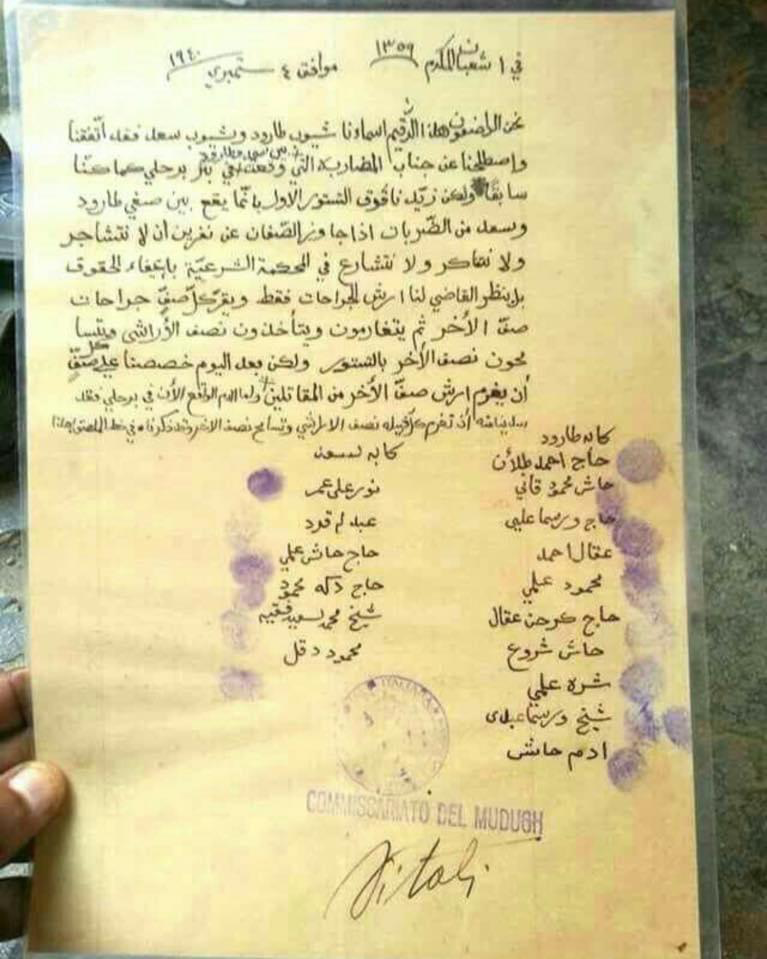 في ١ شعبان المكرم ١٣٥٩
موافق ٤ ستمبري ١٩٤٠
نحن الواضعون هذا الرقيم اسماءنا شيوب طارود وشيوب سعد فقد اتّفقنا
وإصطلحنا عن جناب المضاربة التي وقعت في بئر برحلي كما كنّا
سابقًا ولكن نافوق الستور الاول بانّما يقع بين صفي طارود
وسعد من الضّربات اذا جاوز الصّفان عن نفرين أن لا نتشاجر
ولا نتفاكر ولا نتشارع في المحكمة الشرعيّة بإيفاء الحقوق
بل ينظر القاضي لنا ارش الجراحات فقط ويقر كلّ صفّ جراحات
صفّ الأخر ثم يتغارمون ويتأخذون نصف الأراشي ويتسا
محون نصف الأخر بالستور ولكن بعد اليوم خصصنا على كل صفّ
أن يغرم ارش صفّ الأخر من المقاتلين واما الدم الواقع الأن في برحلي فقد
أن تغرم كل قبيله نصف الاراشي وتسامح نصف الاخر
كابه طارود
حاج احمد طلأن
حاش محمود قاني
حاج ورسما علي
عقال احمد
محمود علمي
حاج كرحن عقال
حاش شروع
شره علمي
شيخ ورسما عبدى
ادم حاشى
كابه لسعد
نور على عمر
عبد لم قود
حاج حاش علمي
حاج دكه محمود
شيخ محمد سعيد فقيه
محمود دقل
ITALIANA
COMMISSARIATO DEL MUDUGH